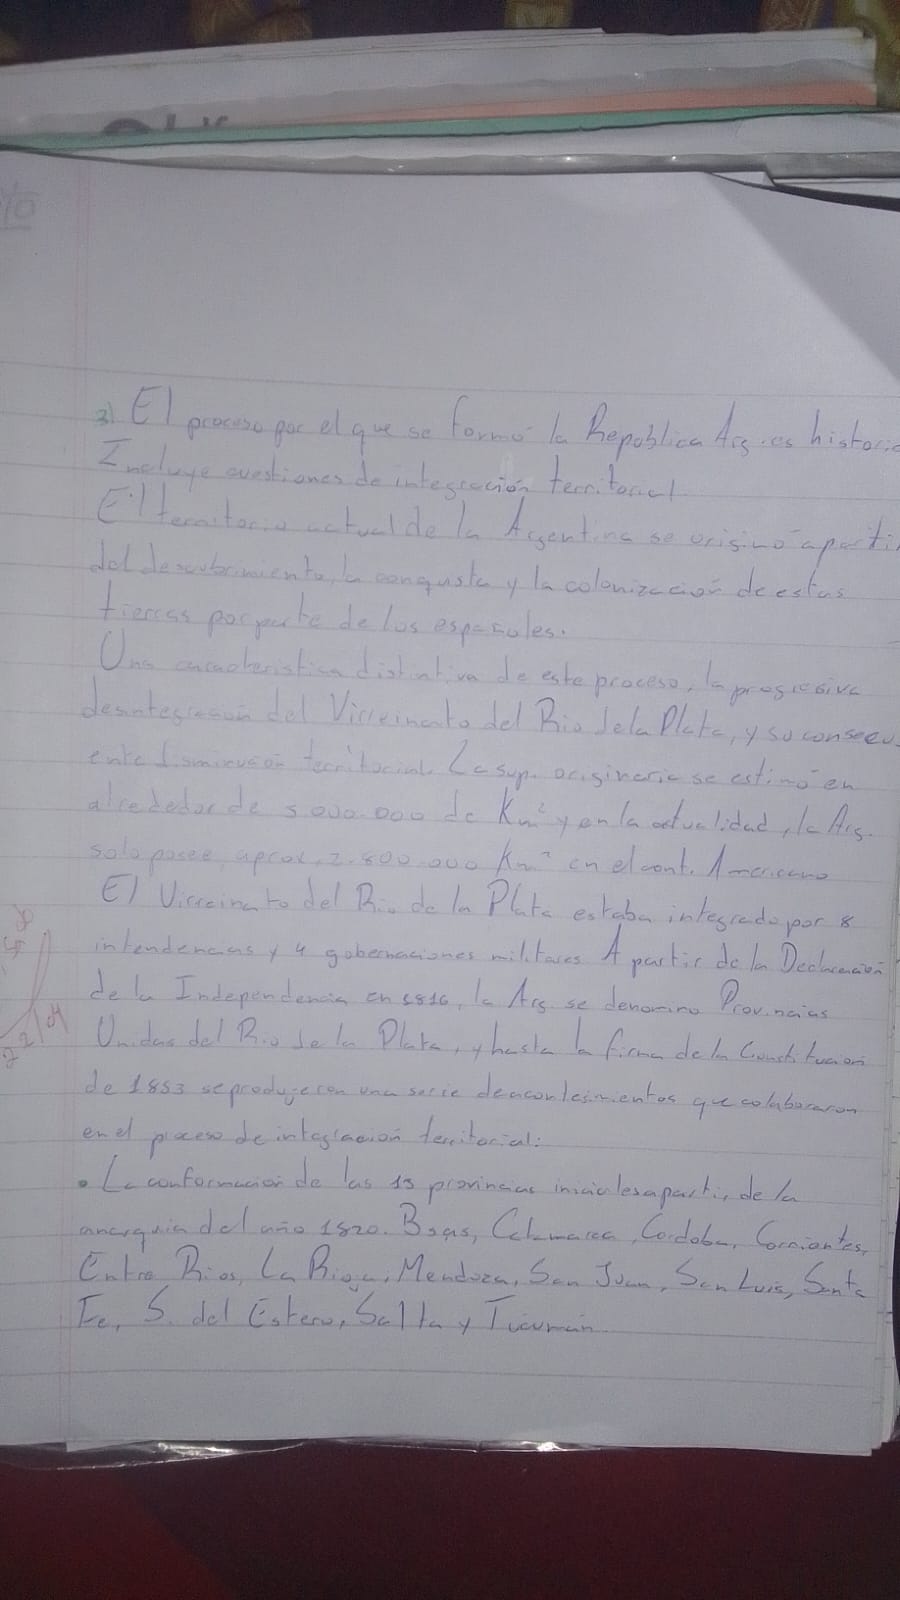 3) El proceso por el que se formó la República Arg. es historic
Incluye cuestiones de integración territorial.
El territorio actual de la Argentina se originó a partir
del descubrimiento, la conquista y la colonización de estas
tierras por parte de los españoles.
Una caracteristica distintiva de este proceso, la progresiva
desintegración del Virreinato del Rio de la Plata, y su consecu
ente disminución territorial. La sup. originaria se estimó en
alrededor de 5.000.000 de Km² y en la actualidad, la Arg.
solo posee, aprox, 2.800.000 Km² en el cont. Americano
El Virreinato del Rio de la Plata estaba integrado por 8
intendencias y 4 gobernaciones militares A partir de la Declaración
de la Independencia en 1816, la Arg. se denomino Provincias
Unidas del Rio de la Plata, y hasta la firma de la Constitucion
de 1853 se produjeron una serie de acontesimientos que colaboraron
en el proceso de integración territorial:
• La conformación de las 13 provincias iniciales a partir de la
anarquia del año 1820. Bsas, Catamarca, Cordoba, Corrientes,
Entre Rios, La Rioja, Mendoza, San Juan, San Luis, Santa
Fe, S. del Estero, Salta y Tucumán.
22/04